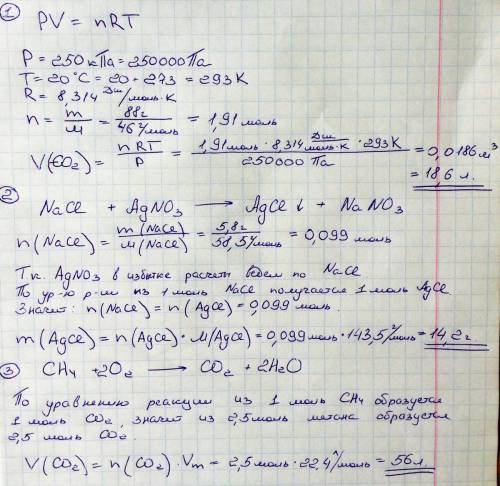 1 PV = nRT
P = 250 кПа = 250000 Па
T = 20°C = 20 + 273 = 293 K
R = 8,314 Дж/моль·К
n = m/M = 88г/46г/моль = 1,91 моль
V(CO2) = nRT/P = 1,91 моль · 8,314 Дж/моль·К · 293К / 250000 Па = 0,0186 м³
= 18,6 л.
2 NaCl + AgNO3 → AgCl↓ + NaNO3
n(NaCl) = m(NaCl)/M(NaCl) = 5,8г/58,5г/моль = 0,099 моль
Т.к. AgNO3 в избытке расчеты ведем по NaCl
По ур-ю р-ии из 1 моль NaCl получается 1 моль AgCl
Значит: n(NaCl) = n(AgCl) = 0,099 моль.
m(AgCl) = n(AgCl) · M(AgCl) = 0,099 моль · 143,5 г/моль = 14,2г
3 CH4 + 2O2 → CO2 + 2H2O
По уравнению реакции из 1 моль CH4 образуется
1 моль CO2, значит из 2,5 моль метана образуется
2,5 моль CO2.
V(CO2) = n(CO2) · Vm = 2,5 моль · 22,4 л/моль = 56 л